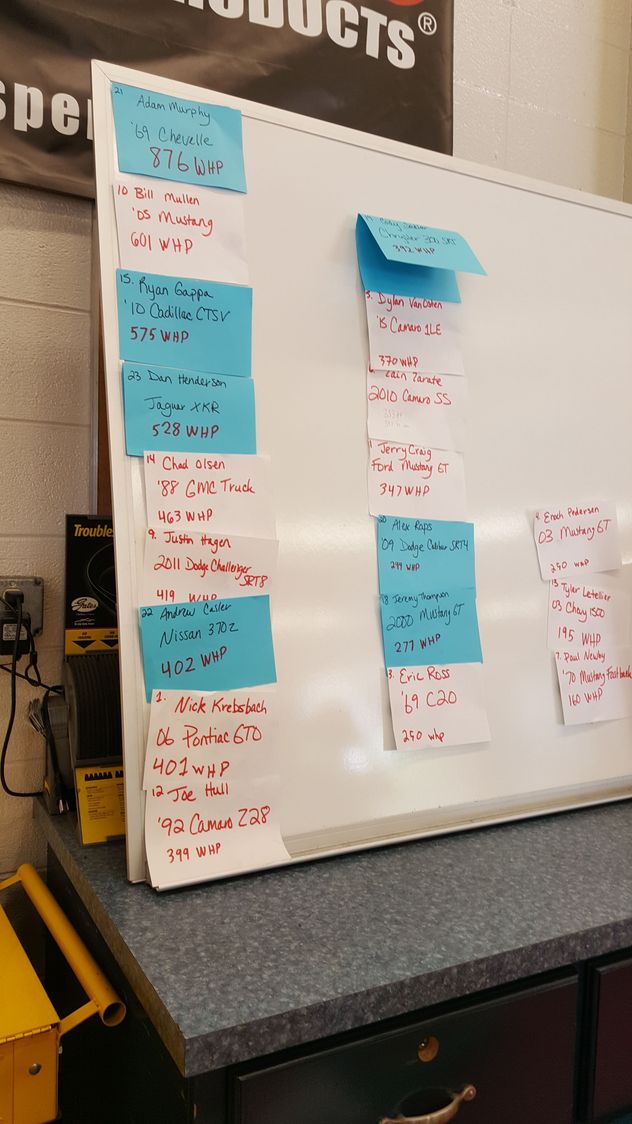 PRODUCTS®
spe
21
Adam Murphy
'69 Chevelle
876 WHP
10 Bill Mullen
'05 Mustang
601 WHP
15. Ryan Gappa
'10 Cadillac CTSV
575 WHP
23 Dan Henderson
Jaguar XKR
528 WHP
14 Chad Olsen
'88 GMC Truck
463 WHP
9. Justin Hagen
2011 Dodge Challenger
SRT8
419 WHP
22 Andrew Casler
Nissan 370z
402 WHP
1. Nick Krebsbach
06 Pontiac GTO
401 WHP
12 Joe Hull
'92 Camaro Z28
399 WHP
Cody
Chrysler 300 SRT
392 WHP
5. Dylan VanOsten
'15 Camaro 1LE
370 WHP
Zain Zarate
2010 Camaro SS
Jerry Craig
Ford Mustang GT
347 WHP
20 Alex Raps
'09 Dodge Caliber SRT4
299 WHP
18 Jeremy Thompson
2000 Mustang GT
277 WHP
3. Eric Ross
'69 C20
250 whp
4. Enoch Pedersen
03 Mustang GT
250 WHP
13 Tyler Letellier
03 Chevy 1500
195 WHP
7. Paul Newby
'70 Mustang Fastback
160 WHP
Trouble
Gates